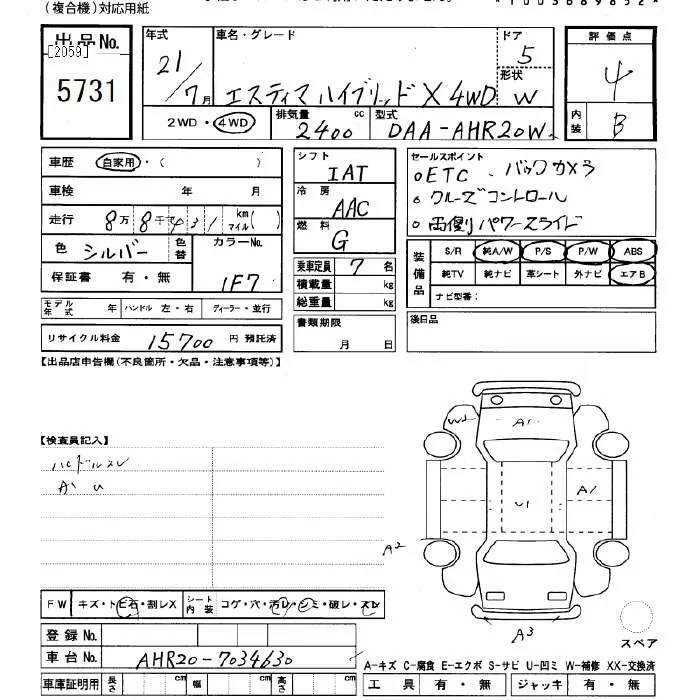 (複合機)対応用紙
出品No.
[2059]
5731
年式
21/7月
車名・グレード
エスティマ ハイブリッド X 4WD
ドア
5
形状
W
評価点
4
内装
B
2WD・4WD
排気量
2400
cc
型式
DAA-AHR20W
車歴
自家用・( )
車検 年 月
走行 8万8千431 km マイル( )
色 シルバー 色替 カラーNo. 1F7
保証書 有・無
モデル年式 年 ハンドル 左・右 ディーラー・並行
リサイクル料金 15700 円 預託済
シフト
IAT
冷房
AAC
燃料
G
乗車定員 7 名
積載量 kg
総重量 kg
書類期限
月 日
セールスポイント
ETC、バックカメラ
クルーズコントロール
両側パワースライド
装備品
S/R 純A/W P/S P/W ABS
純TV 純ナビ 革シート 外ナビ エアB
ナビ型番:
後日品
【出品店申告欄(不良箇所・欠品・注意事項等)】
【検査員記入】
ハンドルスレ
W1
A1
U1
A1
A2
A3
スペア
FW キズ・トビ石・割レX シート内装 コゲ・穴・汚レ・シミ・破レ・スレ
登録No.
車台No. AHR20-7034630
車庫証明用 長さ cm 幅 cm 高さ cm
A-キズ C-腐食 E-エクボ S-サビ U-凹ミ W-補修 XX-交換済
工具 有・無 ジャッキ 有・無